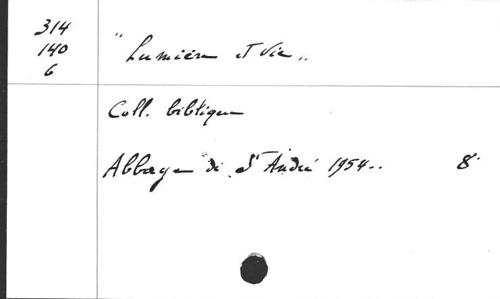 314
140
6
"Lumière et Vie"
Coll. biblique
Abbaye de St André 1954.. 8°